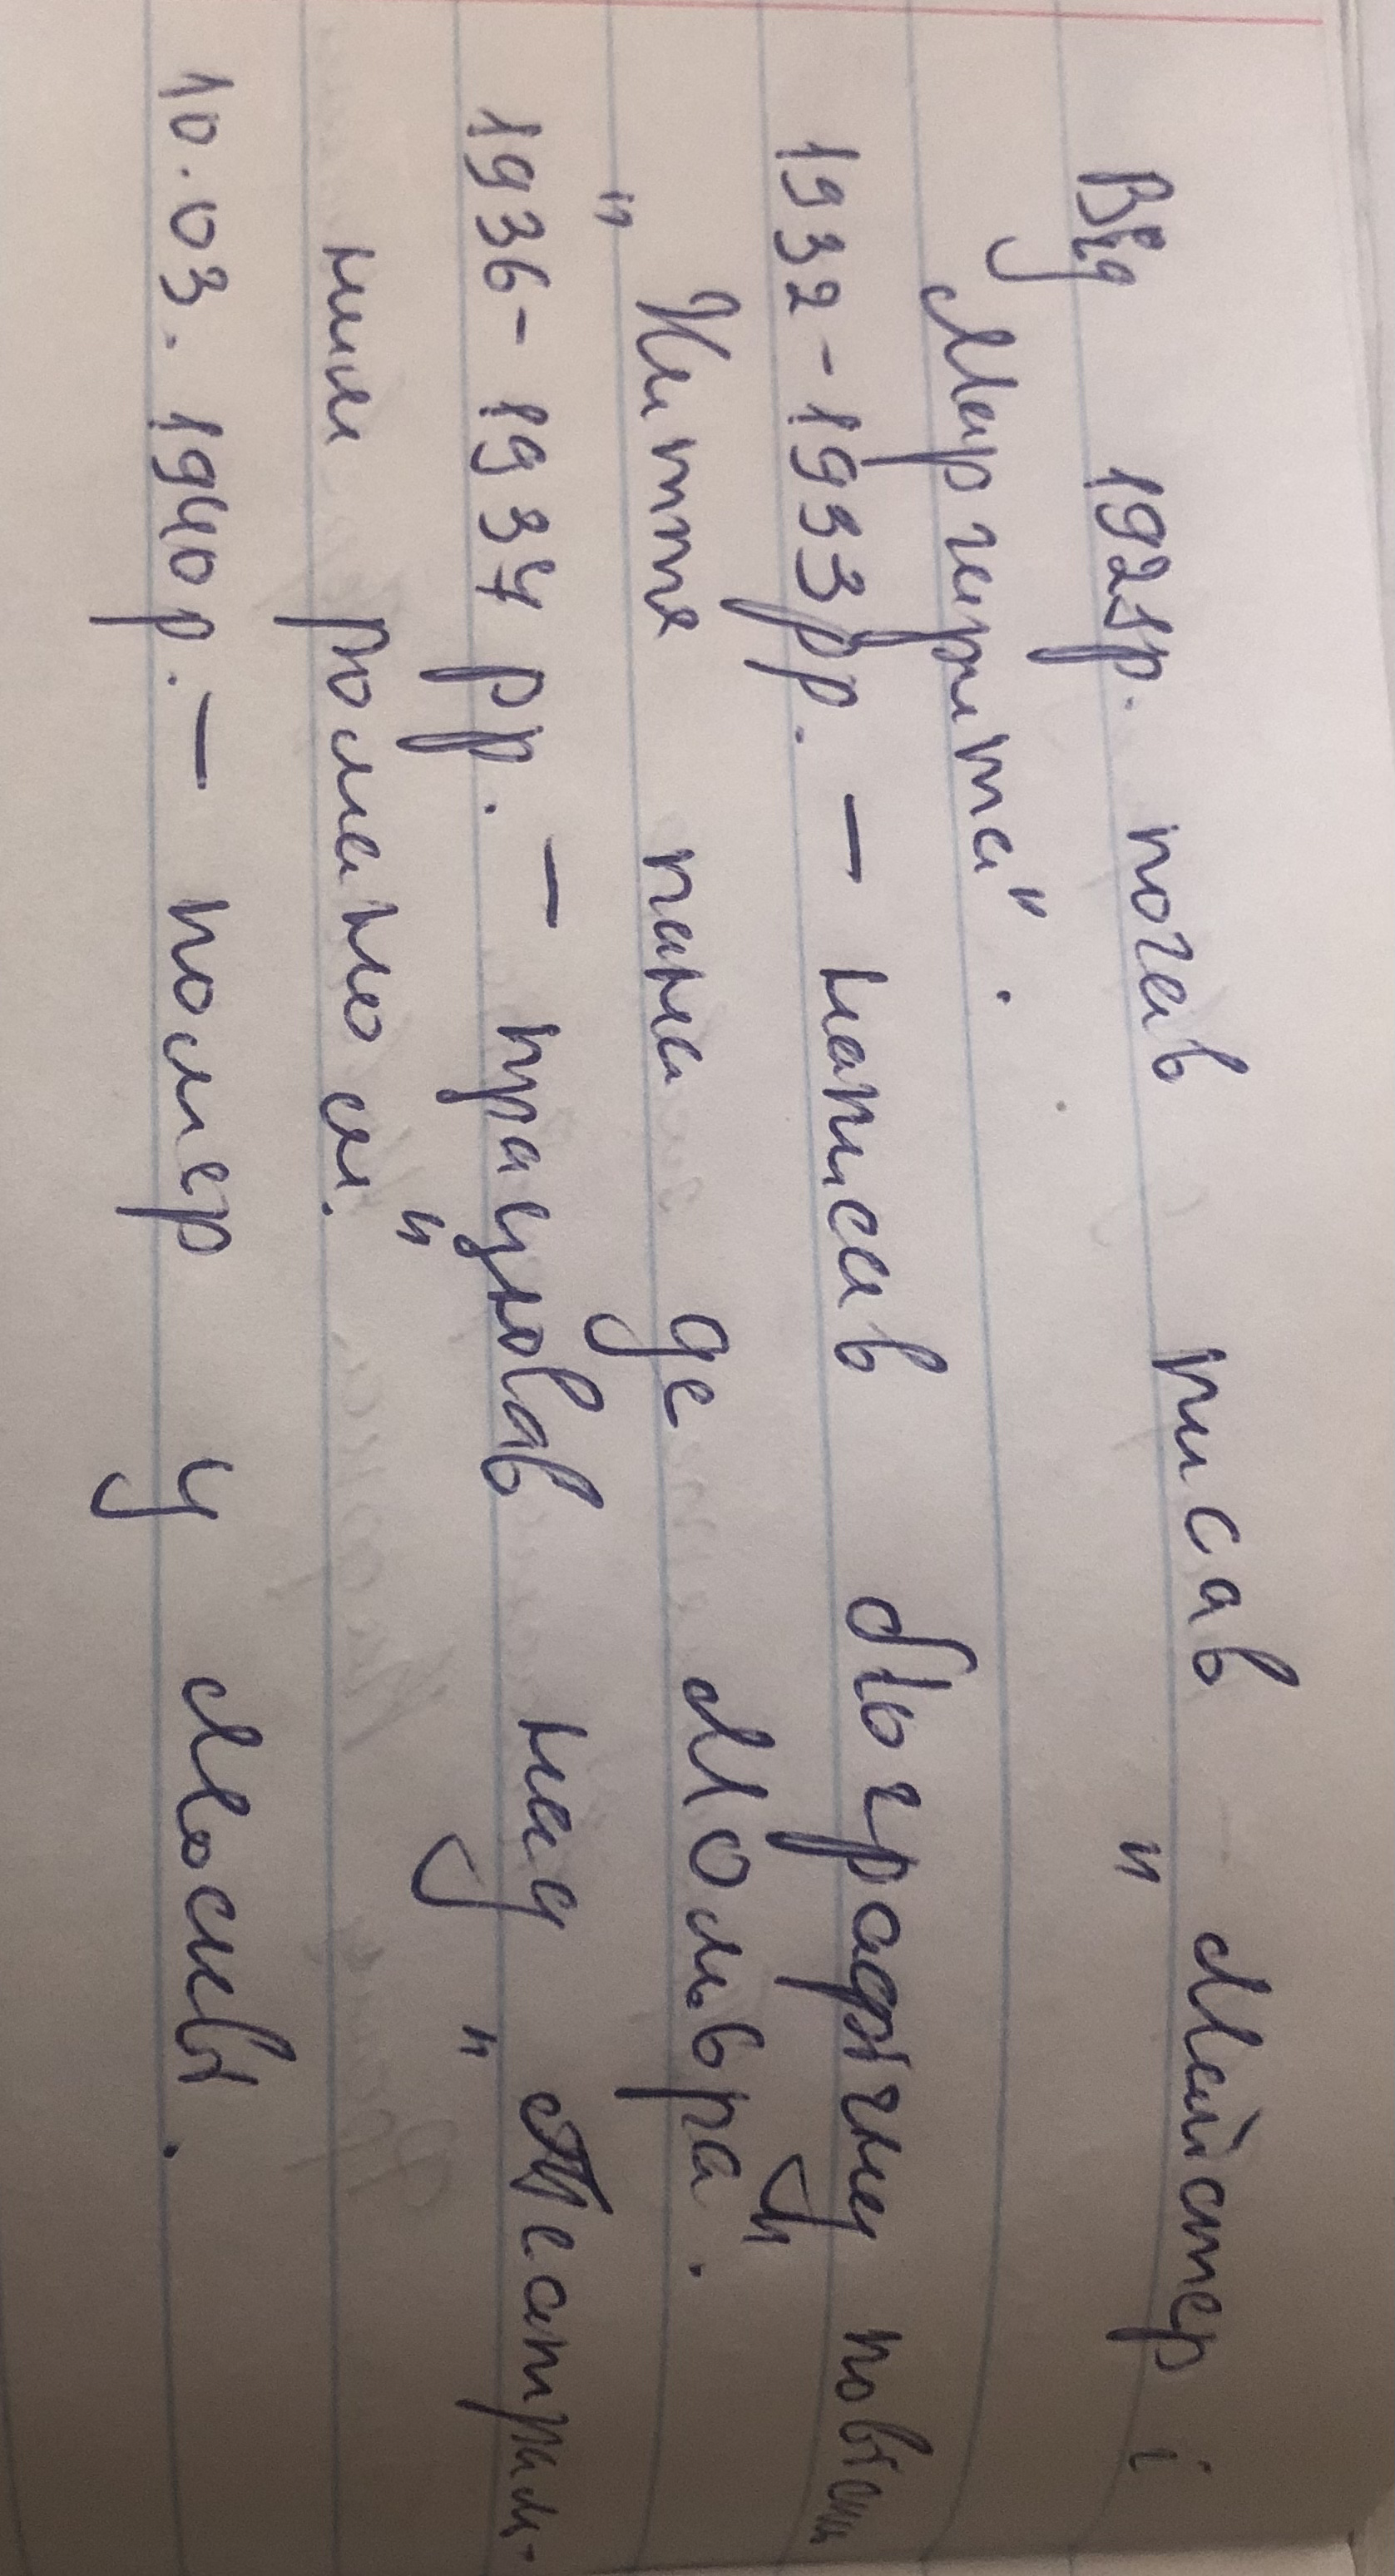 Від 1928р. почав писав „Майстер і
Маргарита".
1932-1933рр. — написав біографічну повість
„Життя пана де Мольєра".
1936-1937 рр. — працював над „Театраль-
ним романом".
10.03.1940р. — помер у Москві.